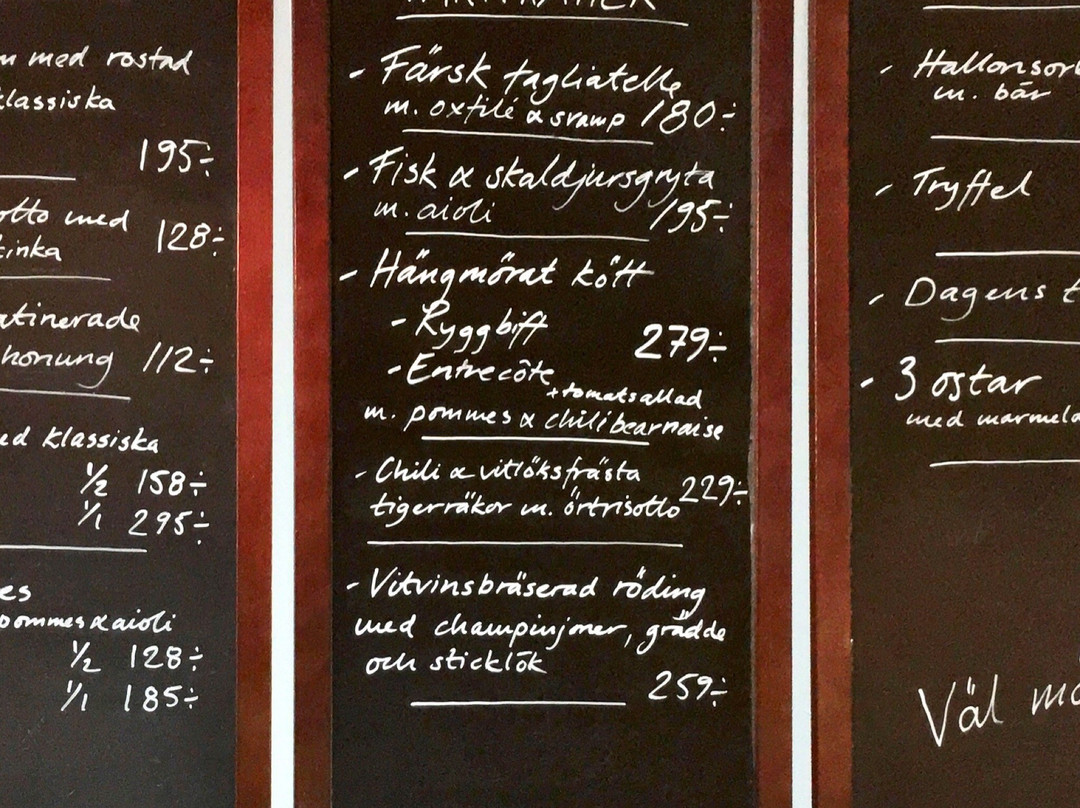 med rostad
klassiska
195:-
med
128:-
honung 112:-
klassiska
1/2 158:-
1/1 295:-
pommes & aioli
1/2 128:-
1/1 185:-
- Färsk tagliatelle
m. oxfilé & svamp 180:-
- Fisk & skaldjursgryta
m. aioli 195:-
- Hängmörat kött
- Ryggbiff 279:-
- Entrecôte
+ tomatsallad
m. pommes & chilibearnaise
- Chili & vitlöksfrästa
tigerräkor m. örtrisotto 229:-
- Vitvinsbräserad röding
med champinjoner, grädde
och sticklök
259:-
- Hallonsor
m. bär
- Tryffel
- Dagens
- 3 ostar
med marmela
Väl